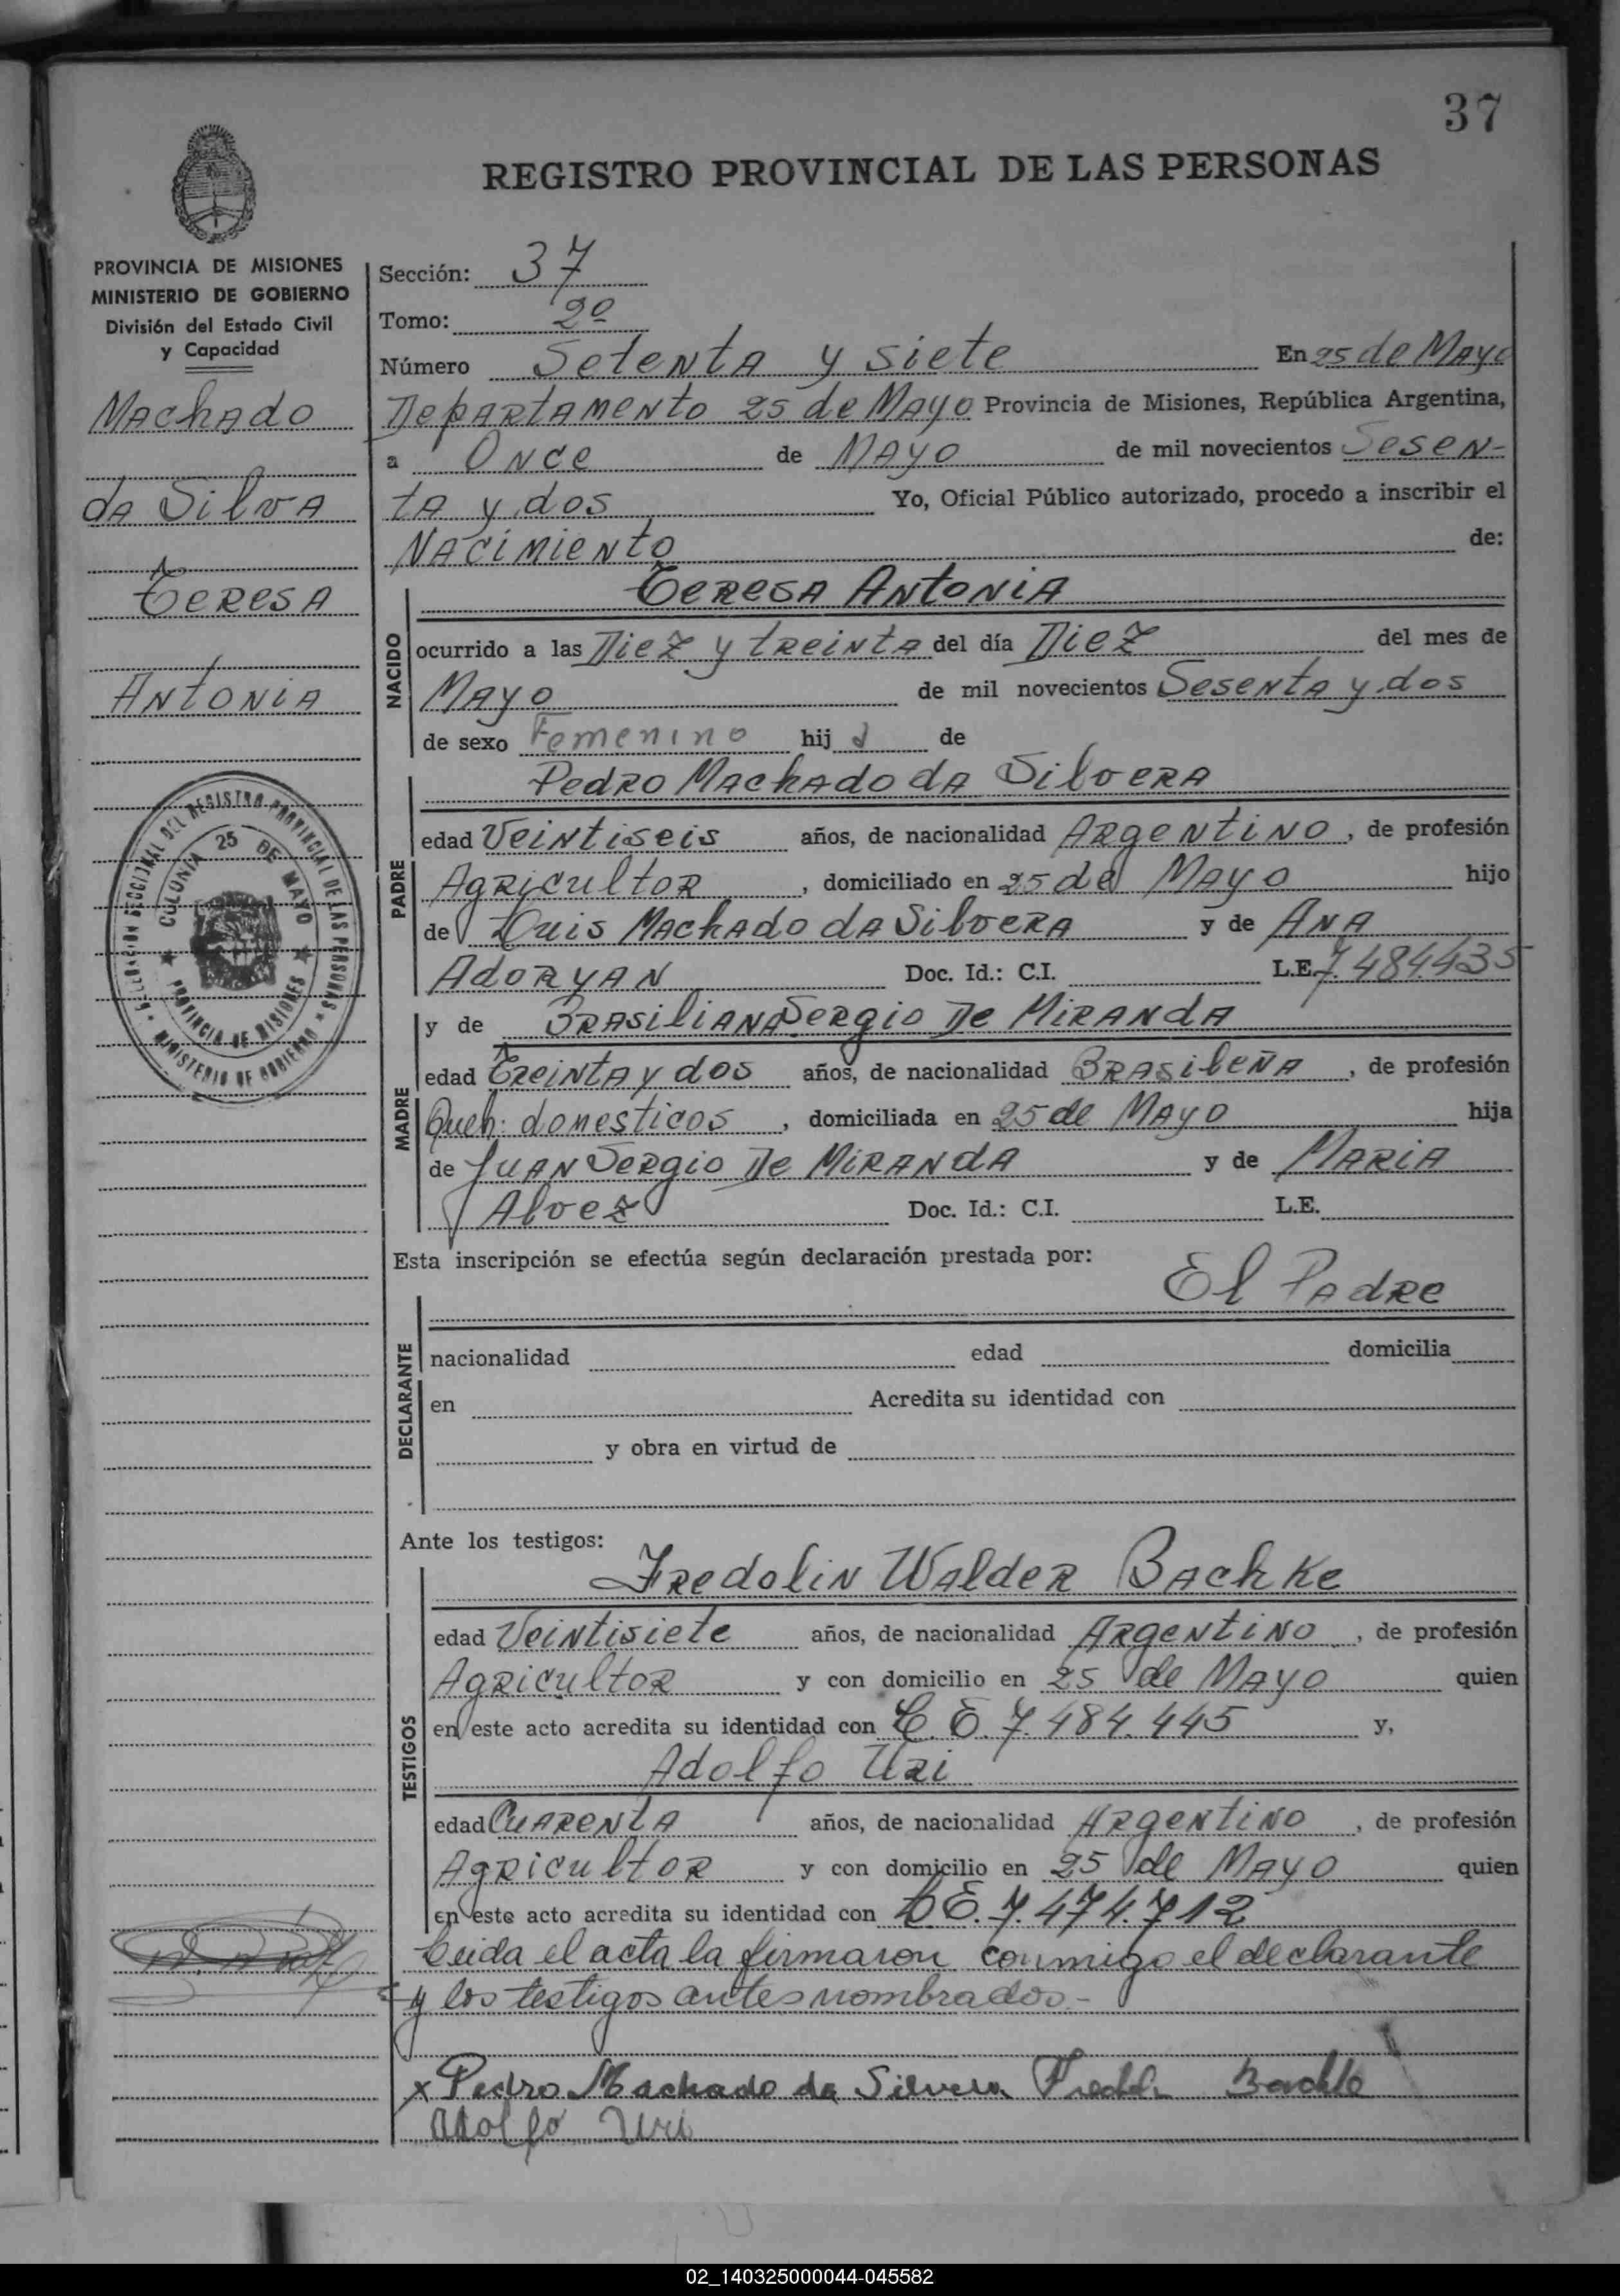 37
REGISTRO PROVINCIAL DE LAS PERSONAS
PROVINCIA DE MISIONES
MINISTERIO DE GOBIERNO
División del Estado Civil
y Capacidad
Machado
da Silva
Teresa
Antonia
DELEGACION SECCIONAL DEL REGISTRO PROVINCIAL DE LAS PERSONAS
MINISTERIO DE GOBIERNO
COLONIA 25 DE MAYO
PROVINCIA DE MISIONES
Sección: 37
Tomo: 2º
Número Setenta y siete En 25 de Mayo
Departamento 25 de Mayo Provincia de Misiones, República Argentina,
a Once de Mayo de mil novecientos Sesen-
ta y dos Yo, Oficial Público autorizado, procedo a inscribir el
Nacimiento de:
NACIDO
Teresa Antonia
ocurrido a las Diez y treinta del día Diez del mes de
Mayo de mil novecientos Sesenta y dos
de sexo Femenino hija de
PADRE
Pedro Machado da Silvera
edad Veintiseis años, de nacionalidad Argentino, de profesión
Agricultor, domiciliado en 25 de Mayo hijo
de Luis Machado da Silvera y de Ana
Adoryan Doc. Id.: C.I. L.E. 7.484.435
MADRE
y de Brasiliana Sergio De Miranda
edad Treinta y dos años, de nacionalidad Brasileña, de profesión
Queh: domesticos, domiciliada en 25 de Mayo hija
de Juan Sergio De Miranda y de Maria
Alvez Doc. Id.: C.I. L.E.
Esta inscripción se efectúa según declaración prestada por:
El Padre
DECLARANTE
nacionalidad edad domicilia
en Acredita su identidad con
y obra en virtud de
Ante los testigos:
TESTIGOS
Fredolin Walder Bachke
edad Veintisiete años, de nacionalidad Argentino, de profesión
Agricultor y con domicilio en 25 de Mayo quien
en este acto acredita su identidad con L.E. 7.484.445 y,
Adolfo Uri
edad Cuarenta años, de nacionalidad Argentino, de profesión
Agricultor y con domicilio en 25 de Mayo quien
en este acto acredita su identidad con L.E. 7.474.712
Leida el acta la firmaron conmigo el declarante
y los testigos antes nombrados.-
x Pedro Machado da Silvera
Adolfo Uri
02_140325000044-045582